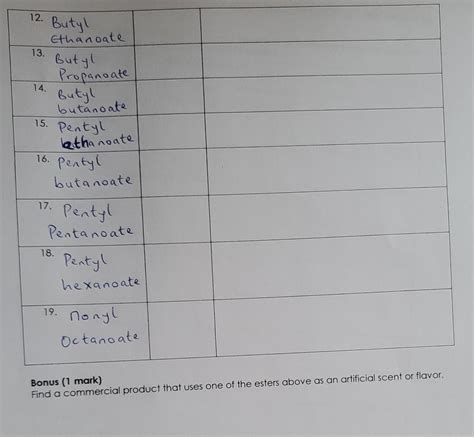 12. Butyl
Ethanoate
13. Butyl
Propanoate
14. Butyl
butanoate
15. Pentyl
ethanoate
16. Pentyl
butanoate
17. Pentyl
Pentanoate
18. Pentyl
hexanoate
19. nonyl
Octanoate
Bonus (1 mark)
Find a commercial product that uses one of the esters above as an artificial scent or flavor.